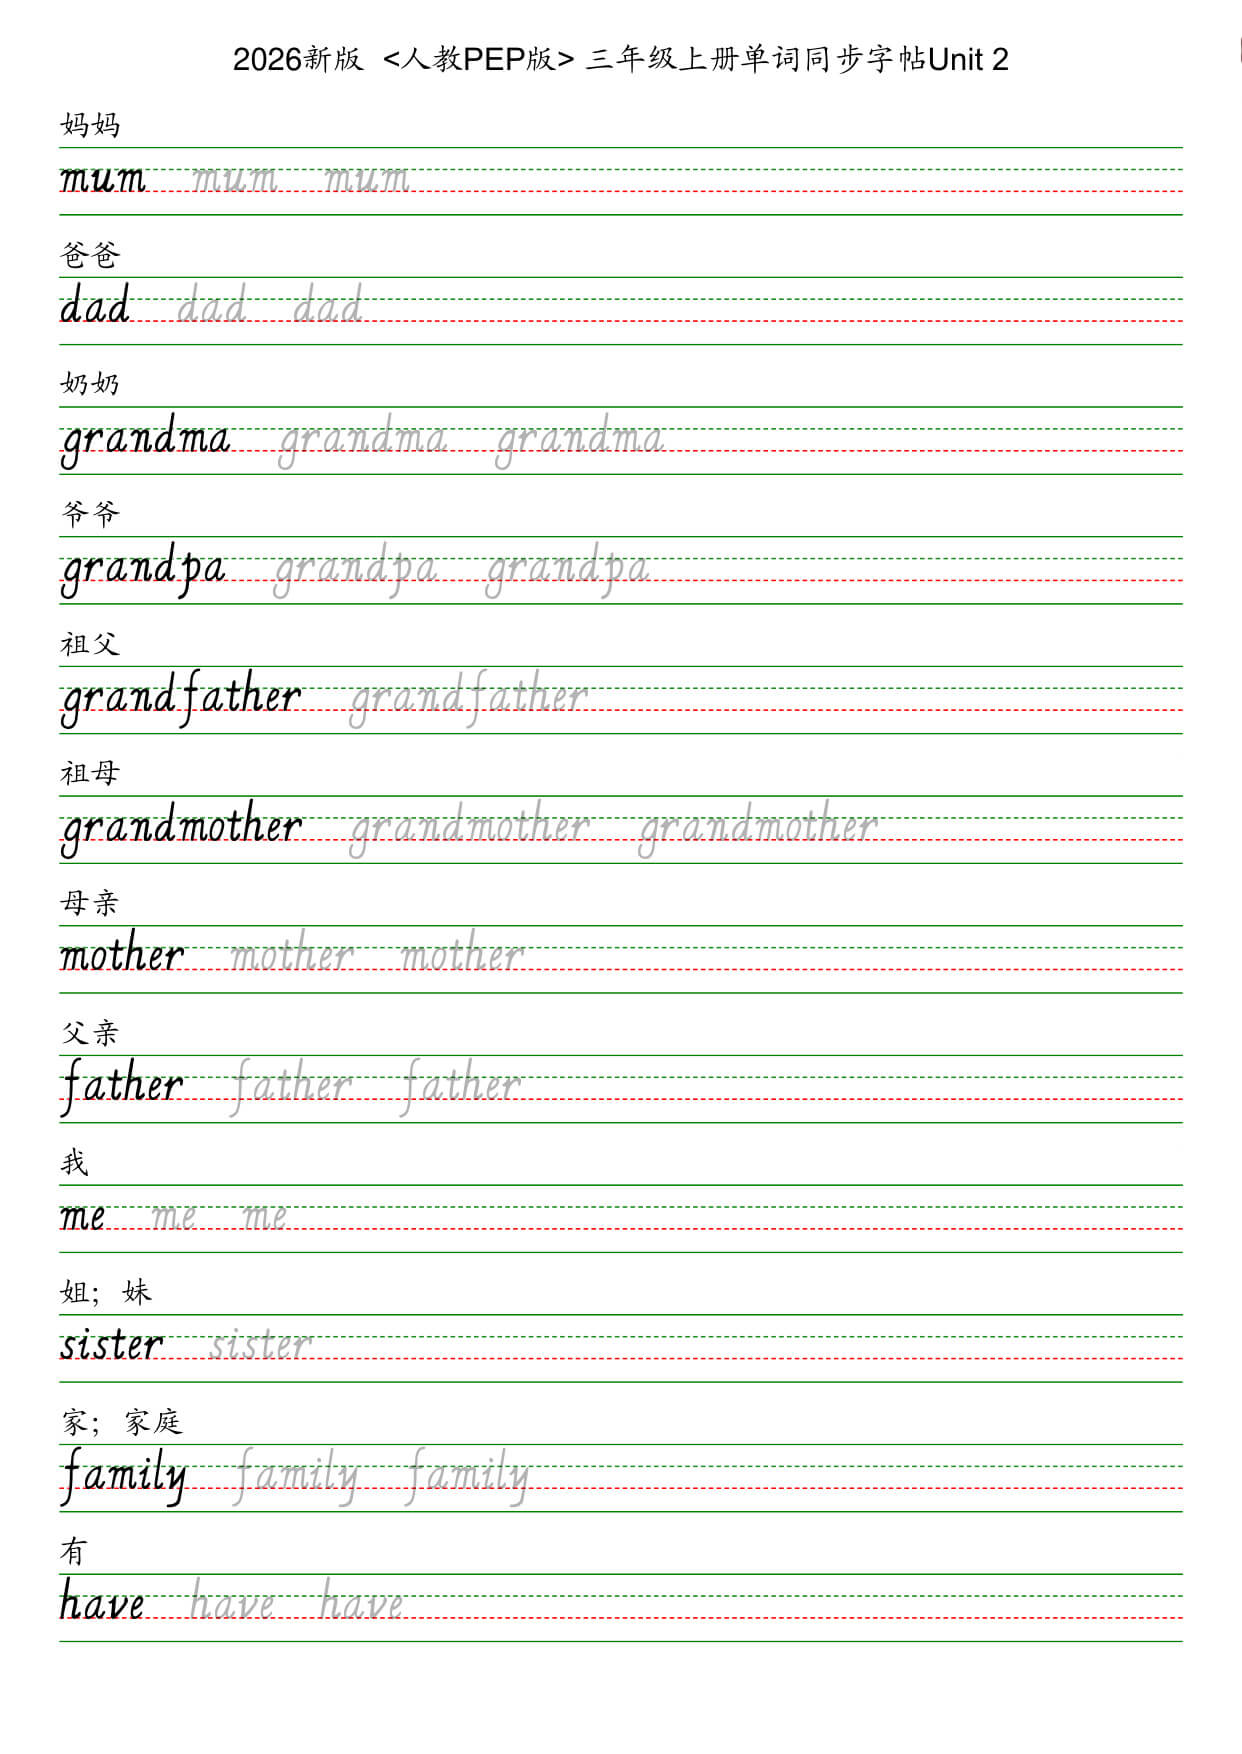 2026新版 <人教PEP版> 三年级上册单词同步字帖Unit 2
妈妈
mum mum mum
爸爸
dad dad dad
奶奶
grandma grandma grandma
爷爷
grandpa grandpa grandpa
祖父
grandfather grandfather
祖母
grandmother grandmother grandmother
母亲
mother mother mother
父亲
father father father
我
me me me
姐；妹
sister sister
家；家庭
family family family
有
have have have